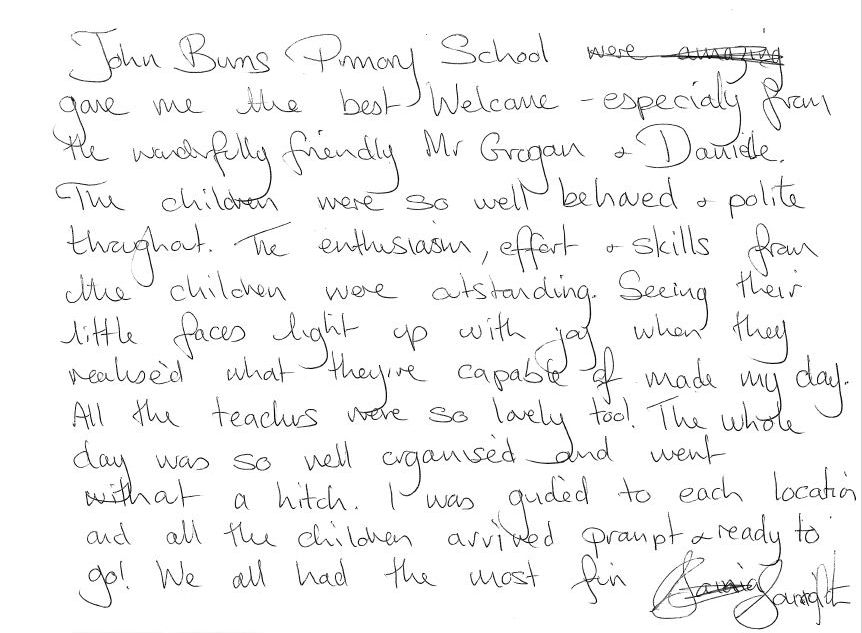 John Burns Primary School were amazing
gave me the best Welcome - especialy from
the wonderfully friendly Mr Grogan & Danielle.
The children were so well behaved & polite
throughout. The enthusiasm, effort & skills from
the children were outstanding. Seeing their
little faces light up with joy when they
realised what they're capable of made my day.
All the teachers were so lovely too! The whole
day was so well organised and went
without a hitch. I was guided to each location
and all the children arrived prompt & ready to
go! We all had the most fun